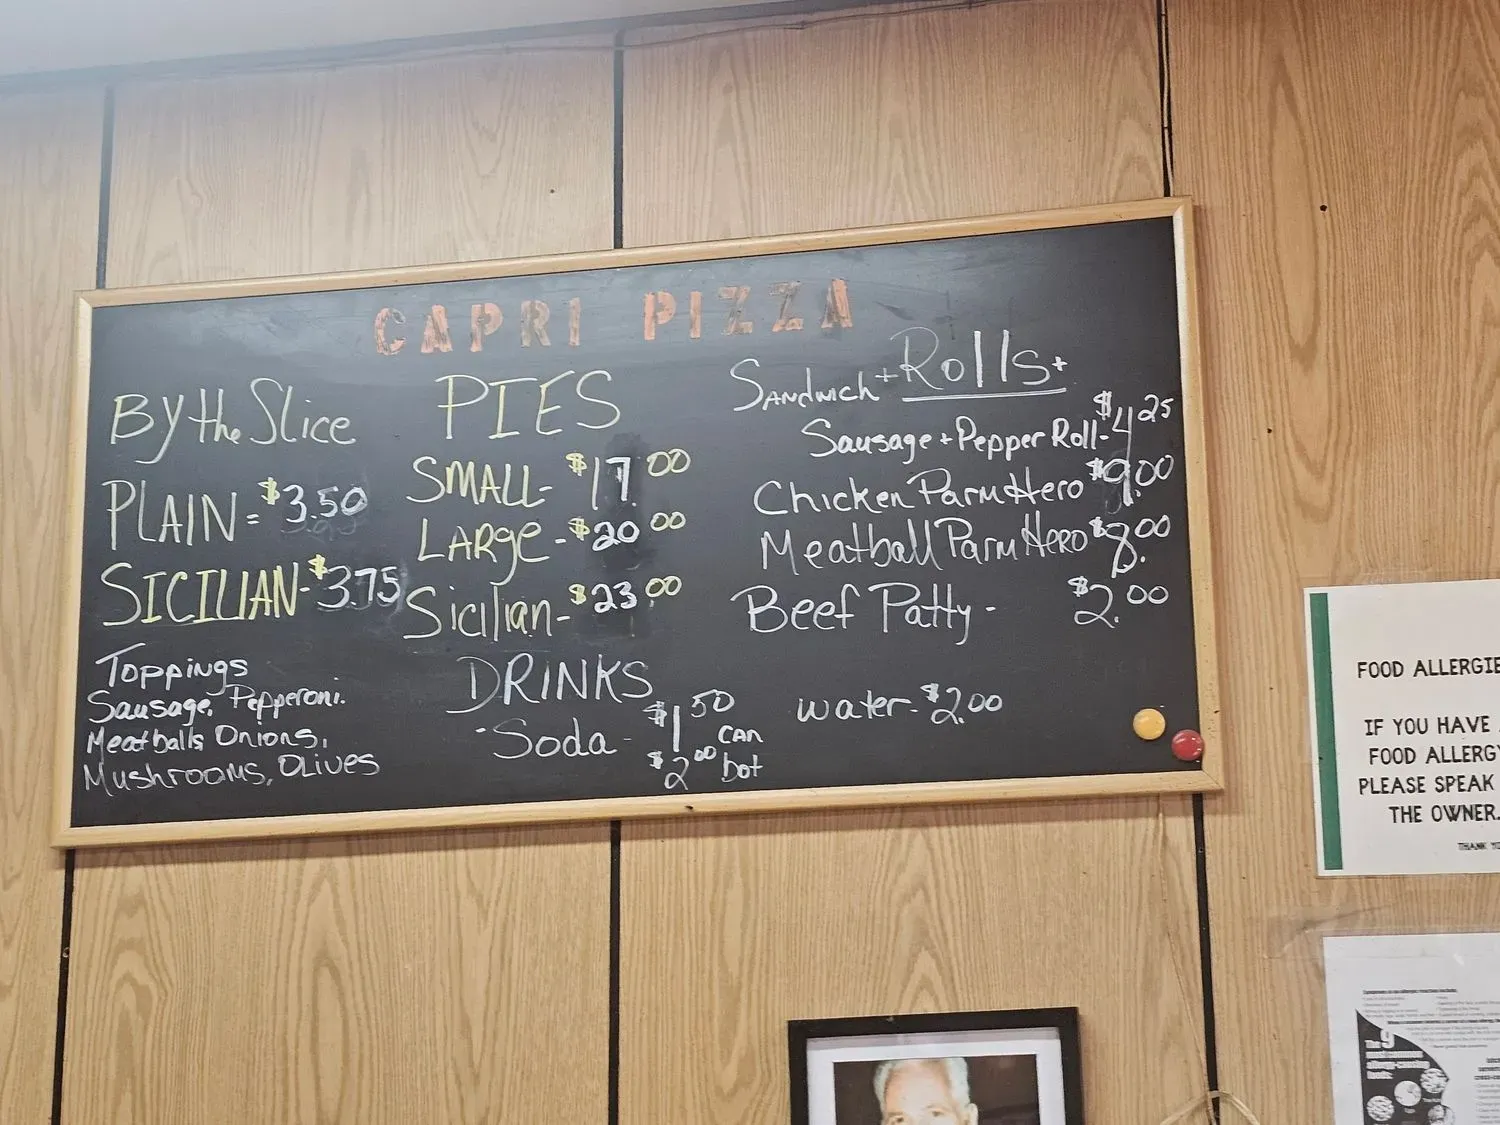 CAPRI PIZZA
By the Slice
PLAIN = $3.50
SICILIAN - $3.75
Toppings
Sausage, Pepperoni.
Meatballs, Onions,
Mushrooms, OLives
PIES
SMALL - $17.00
LARge - $20.00
Sicilian - $23.00
DRINKS
Soda - $1.50 CAN
$2.00 bot
water - $2.00
SANdwich + Rolls+
Sausage + Pepper Roll - $4.25
Chicken Parm Hero $9.00
Meatball Parm Hero $8.00
Beef Patty - $2.00
FOOD ALLERGIE
IF YOU HAVE
FOOD ALLERGY
PLEASE SPEAK
THE OWNER.
THANK YO
The 9